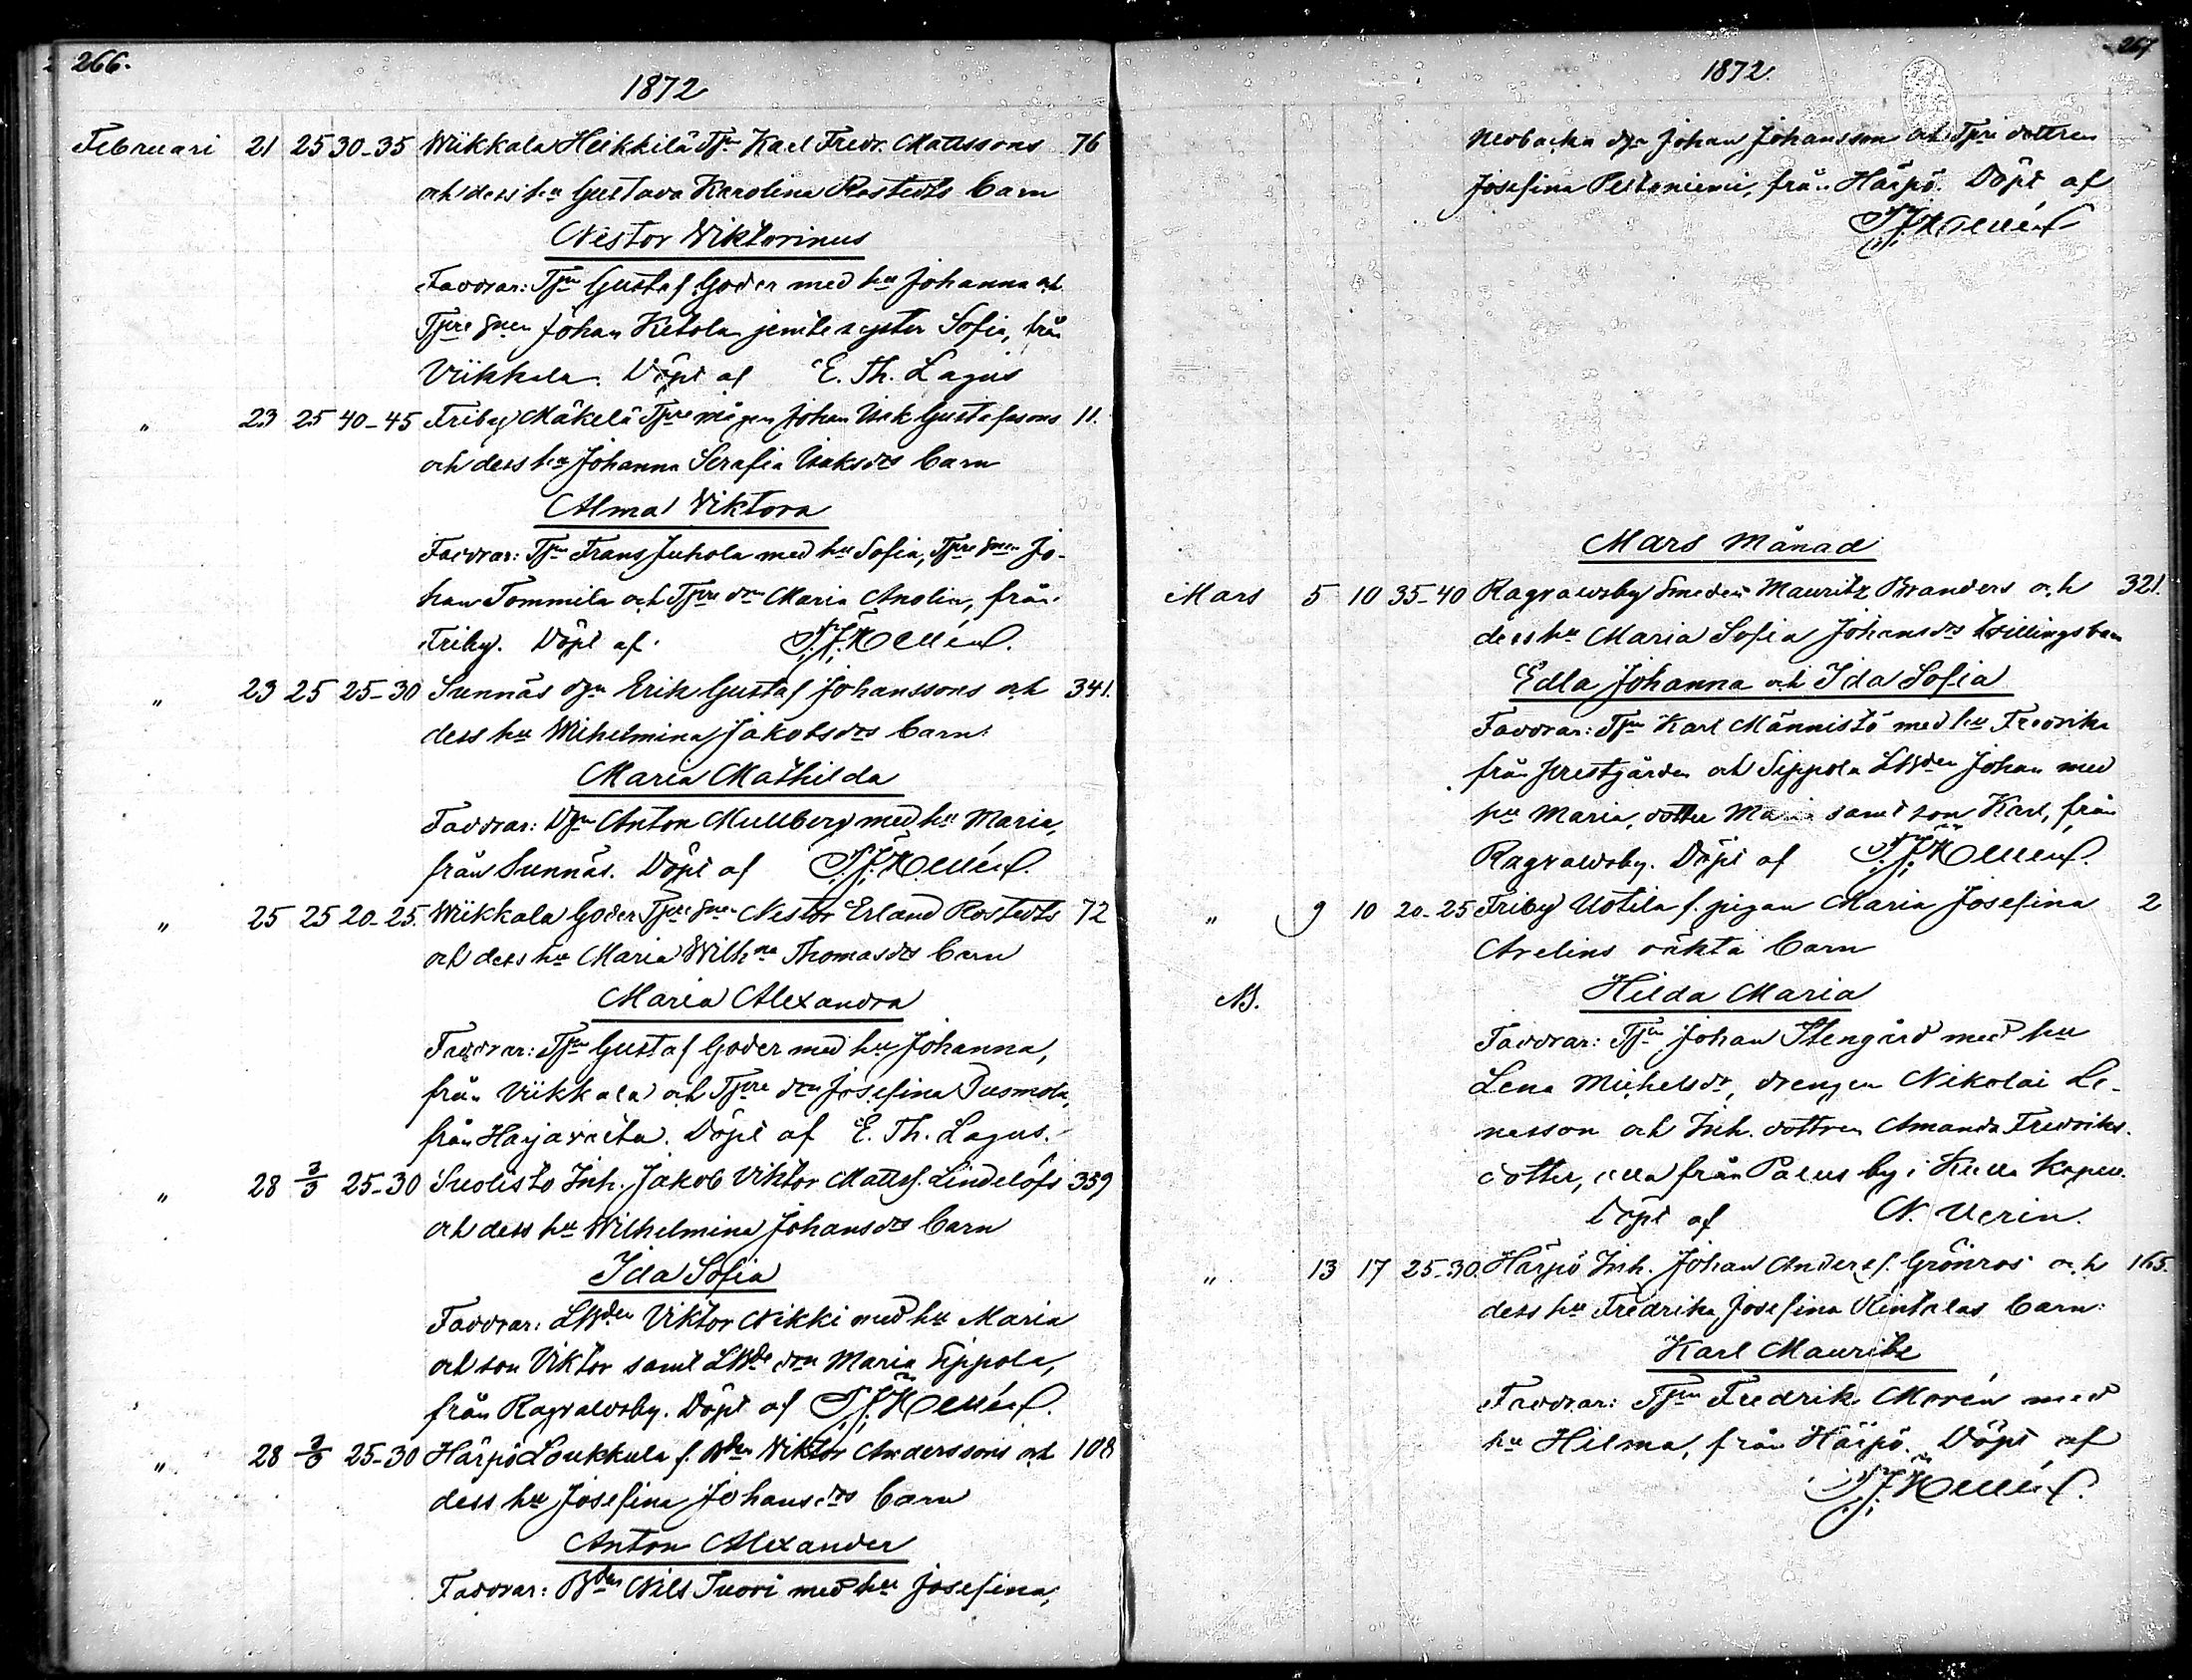 266.
1872
Februari 21 25 30-35 Wiikkala Heikkilä Tpn Karl Fredr. Mattssons 76
och dess hu Gustava Karolina Rostedts barn
Nestor Wiktorinus
Faddrar: Tpn Gustaf Goder med hu Johanna och
Tpre snen Johan Ketola jemte syster Sofia, från
Viikkala. Döpt af E. Th. Lagus
" 23 25 40-45 Friby Mäkelä Tpre mågen Johan Isak Gustafssons 11.
och dess hu Johanna Serafia Isaksdrs barn
Alma Viktora
Faddrar: Tpn Frans Juhola med hu Sofia, Tpre snen Jo-
han Tommila och Tpre drn Maria Anolin, från
Friby. Döpt af
" 23 25 25-30 Sunnäs dgn Erik Gustaf Johanssons och 341.
dess hu Wilhelmina Jakobsdrs barn
Maria Mathilda
Faddrar: Dgn Anton Mullberg med hu Maria,
från Sunnäs. Döpt af
" 25 25 20-25. Wiikkala Goder Tpre snen Nestor Erland Rostedts 72
och dess hu Maria Wilhna Thomasdrs barn
Maria Alexandra
Faddrar: Tpn Gustaf Goder med hu Johanna,
från Viikkala och Tpre drn Josefina Tusmola,
från Harjavalta. Döpt af E. Th. Lagus.
" 28 3/3 25-30 Suolisto Inh. Jakob Viktor Mattsf. Lindelöfs 359
och dess hu Wilhelmina Johansdrs barn
Ida Sofia
Faddrar: LBden Viktor Nikki med hu Maria
och son Viktor samt LBde drn Maria Sippola,
från Ragvaldsby. Döpt af
" 28 3/3 25-30 Härpö Loukkula f. Bden Viktor Anderssons och 108
dess hu Josefina Johansdrs barn
Anton Alexander
Faddrar: Bden Nils Tuori med hu Josefina,
267
1872
Nedbacka dgn Johan Johansson och Tpre dottren
Josefina Peltoniemi, från Härpö. Döpt af
Mars Månad
Mars 5 10 35-40 Ragvaldsby Smeden Mauritz Branders och 321.
dess hu Maria Sofia Johansdrs tvillingsbarn
Edla Johanna och Ida Sofia
Faddrar: Tpn Karl Männistö med hu Fredrika
från prestgården och Sippola LBden Johan med
hu Maria, dotter Maria samt son Karl, från
Ragvaldsby. Döpt af
" 9 10 20-25 Friby Uotila f. pigan Maria Josefina 2
Avelins oäkta barn
NB. Hilda Maria
Faddrar: Tpn Johan Stengård med hu
Lena Michelsdr, drengen Nikolai Le-
nasson och Inh. dottren Amanda Fredriks-
dotter, alla från Palus by i Kulla Kapell.
Döpt af N. Verin.
" 13 17 25-30. Härpö Inh. Johan Andersf. Grönros och 165.
dess hu Fredrika Josefina Kintalas barn
Karl Mauritz
Faddrar: Tpn Fredrik Morén med
hu Hilma, från Härpö. Döpt af